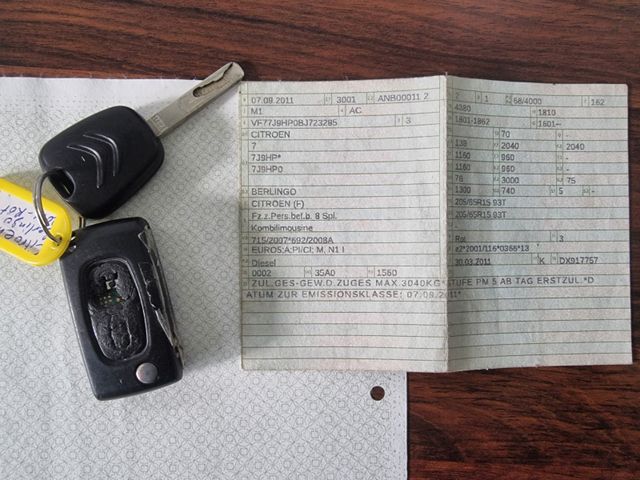 07.09.2011 3001 ANB00011 2
M1 AC
VF77J9HP0BJ723285 3
CITROEN
7
7J9HP*
7J9HP0
BERLINGO
CITROEN (F)
Fz.z.Pers.bef.b. 8 Spl.
Kombilimousine
715/2007*692/2008A
EURO5;A;PI/CI; M, N1 I
Diesel
0002 35A0 1560
ZUL.GES-GEW.D.ZUGES MAX.3040KG*STUFE PM 5 AB TAG ERSTZUL.*D
ATUM ZUR EMISSIONSKLASSE: 07.09.2011*
1 68/4000 162
4380 1810
1801-1862 1601–
70 -
139 2040 2040
1160 960 -
1160 960 -
76 3000 75
1300 740 5 -
205/65R15 93T
205/65R15 93T
-
Rot 3
e2*2001/116*0366*13
30.03.2011 K DX917757
Citroen
Berlingo
Rot